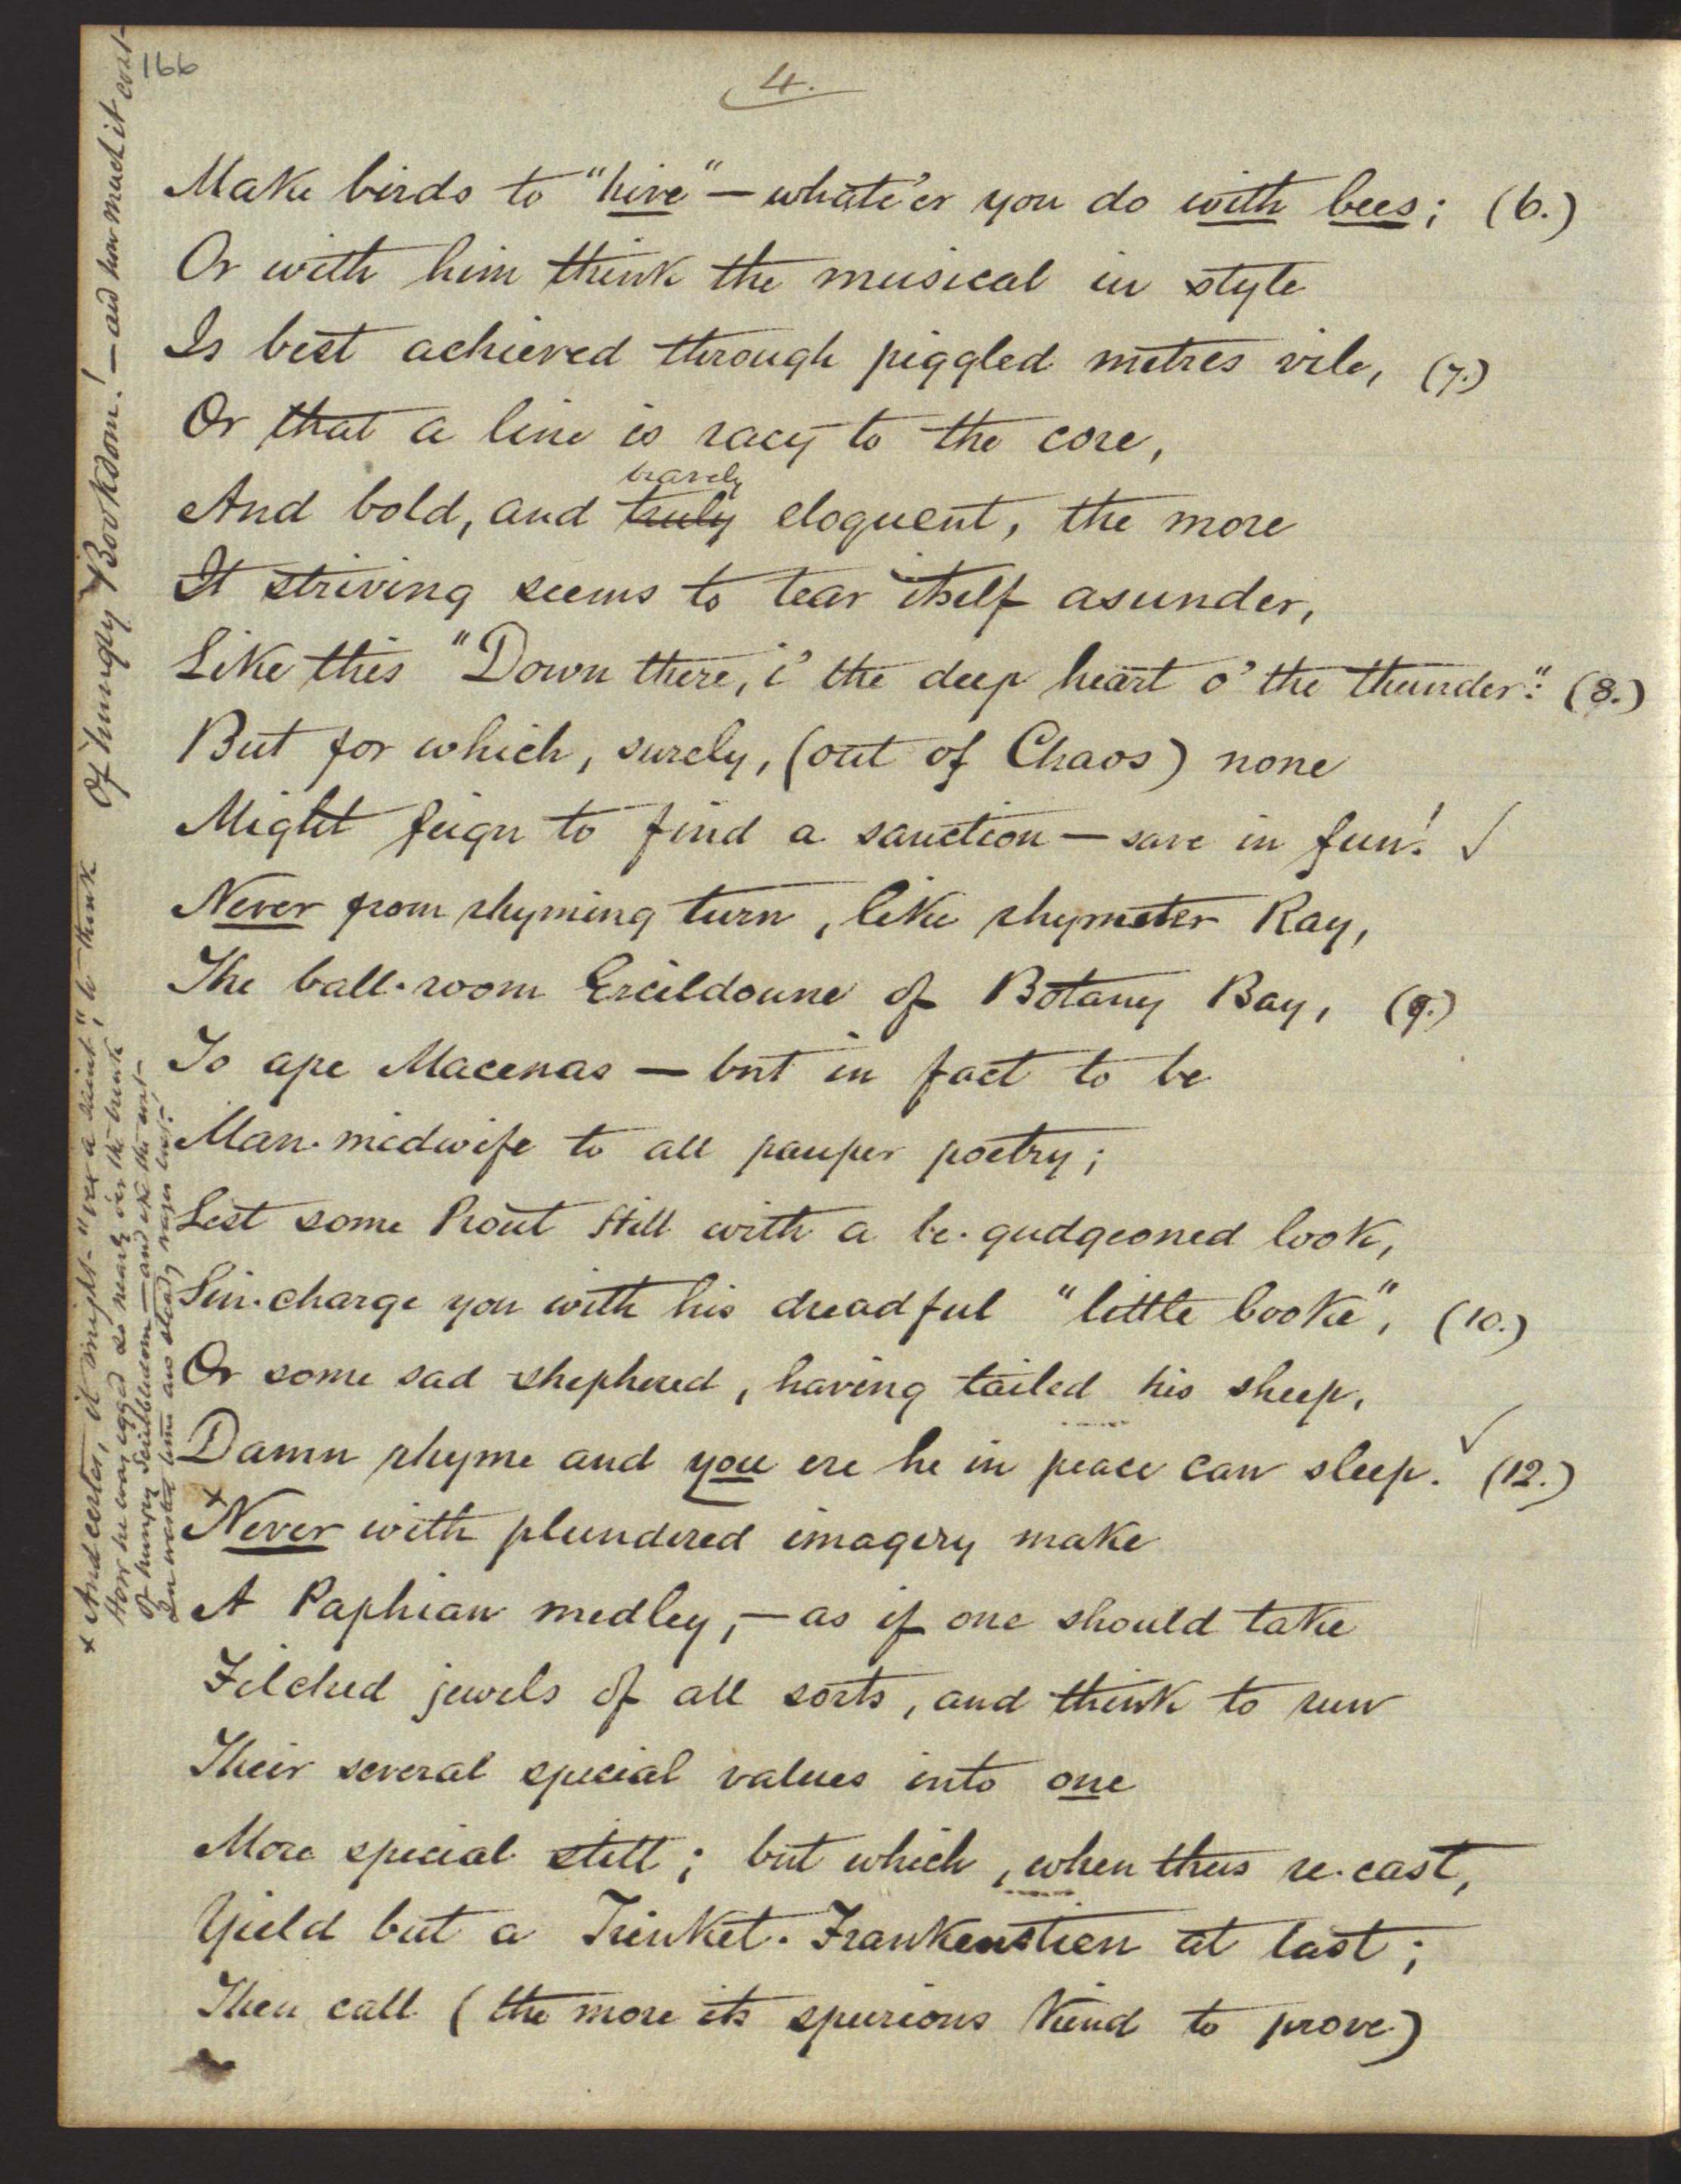 166
4.
Make birds to "hive" — whate'er you do with bees; (6.)
Or with him think the musical in style
Is best achieved through piggled metres vile, (7.)
Or that a line is racy to the core,
bravely
And bold, and truly eloquent, the more
It striving seems to tear itself asunder,
Like this "Down there, i' the deep heart o' the thunder": (8.)
But for which, surely, (out of Chaos) none
Might feign to find a sanction — save in fun! ✓
Never from rhyming turn, like rhymster Ray,
The ball-room Ercildoune of Botany Bay, (9.)
To ape Macenas — but in fact to be
Man-midwife to all pauper poetry;
Lest some Prout still with a be-gudgeoned look,
Sin-charge you with his dreadful "little booke", (10.)
Or some sad shepherd, having tailed his sheep,
Damn rhyme and you ere he in peace can sleep. ✓ (12.)
x Never with plundered imagery make
A Paphian medley, — as if one should take
Filched jewels of all sorts, and think to run
Their several special values into one
More special still; but which, when thus re-cast,
Yield but a Trinket-Frankenstien at last;
Then call (the more its spurious kind to prove)
x And certes, it might "vex a saint", to think
How he was egged so nearly o'er the brink
Of hungry Scribbledom — and eke the cost
In wasted time and steady wages lost!
Of hungry Bookdom! — and how much it cost